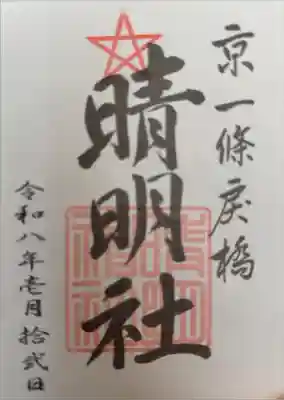 京一條戻橋
晴明社
令和八年壱月拾弐日